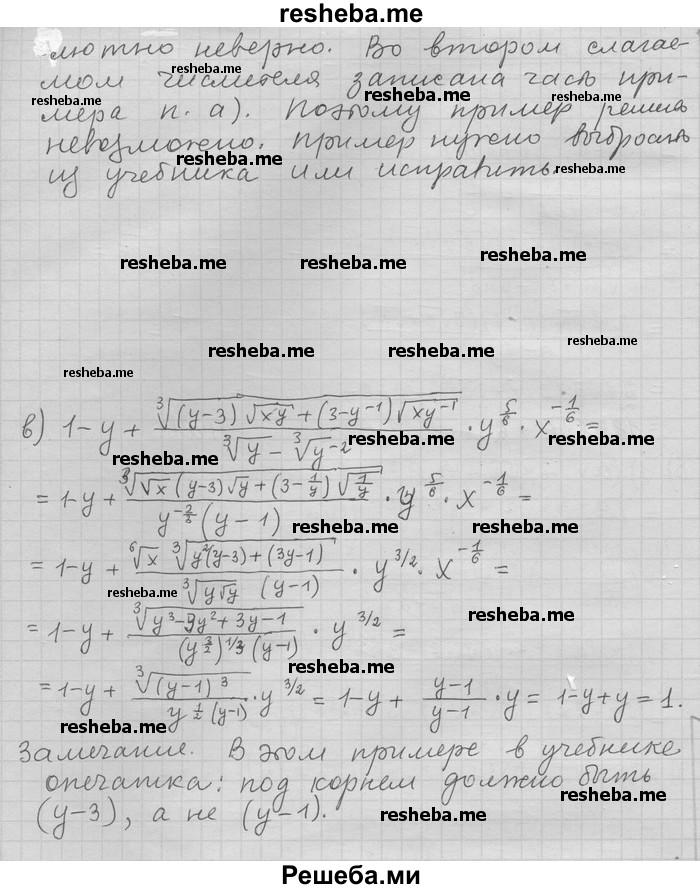 resheba.me
лютно неверно. Во втором слагае-
мом числителя записана часть при-
мера п. а). Поэтому пример решить
невозможно. Пример нужно выбросить
из учебника или исправить.
resheba.me resheba.me
resheba.me resheba.me
resheba.me
resheba.me resheba.me resheba.me
resheba.me resheba.me resheba.me
в) 1-y + ∛((y-3)√xy + (3-y⁻¹)√xy⁻¹) / (∛y - ∛y⁻²) · y^(5/6) · x^(-1/6) =
resheba.me
= 1-y + ∛(√x (y-3)√y + (3-1/y)√(1/y)) / (y^(-2/3) (y-1)) · y^(5/6) · x^(-1/6) =
resheba.me
= 1-y + ⁶√x ∛(y²(y-3)+(3y-1)) / (∛(y√y) (y-1)) · y^(3/2) · x^(-1/6) =
resheba.me resheba.me
= 1-y + ∛(y³-3y²+3y-1) / ((y^(3/2))^(1/3) (y-1)) · y^(3/2) =
resheba.me
= 1-y + ∛((y-1)³) / (y^(1/2) (y-1)) · y^(3/2) = 1-y + (y-1)/(y-1) · y = 1-y+y = 1.
resheba.me resheba.me
Замечание. В этом примере в учебнике
опечатка: под корнем должно быть
resheba.me
(y-3), а не (y-1).
resheba.me
Решеба.ми